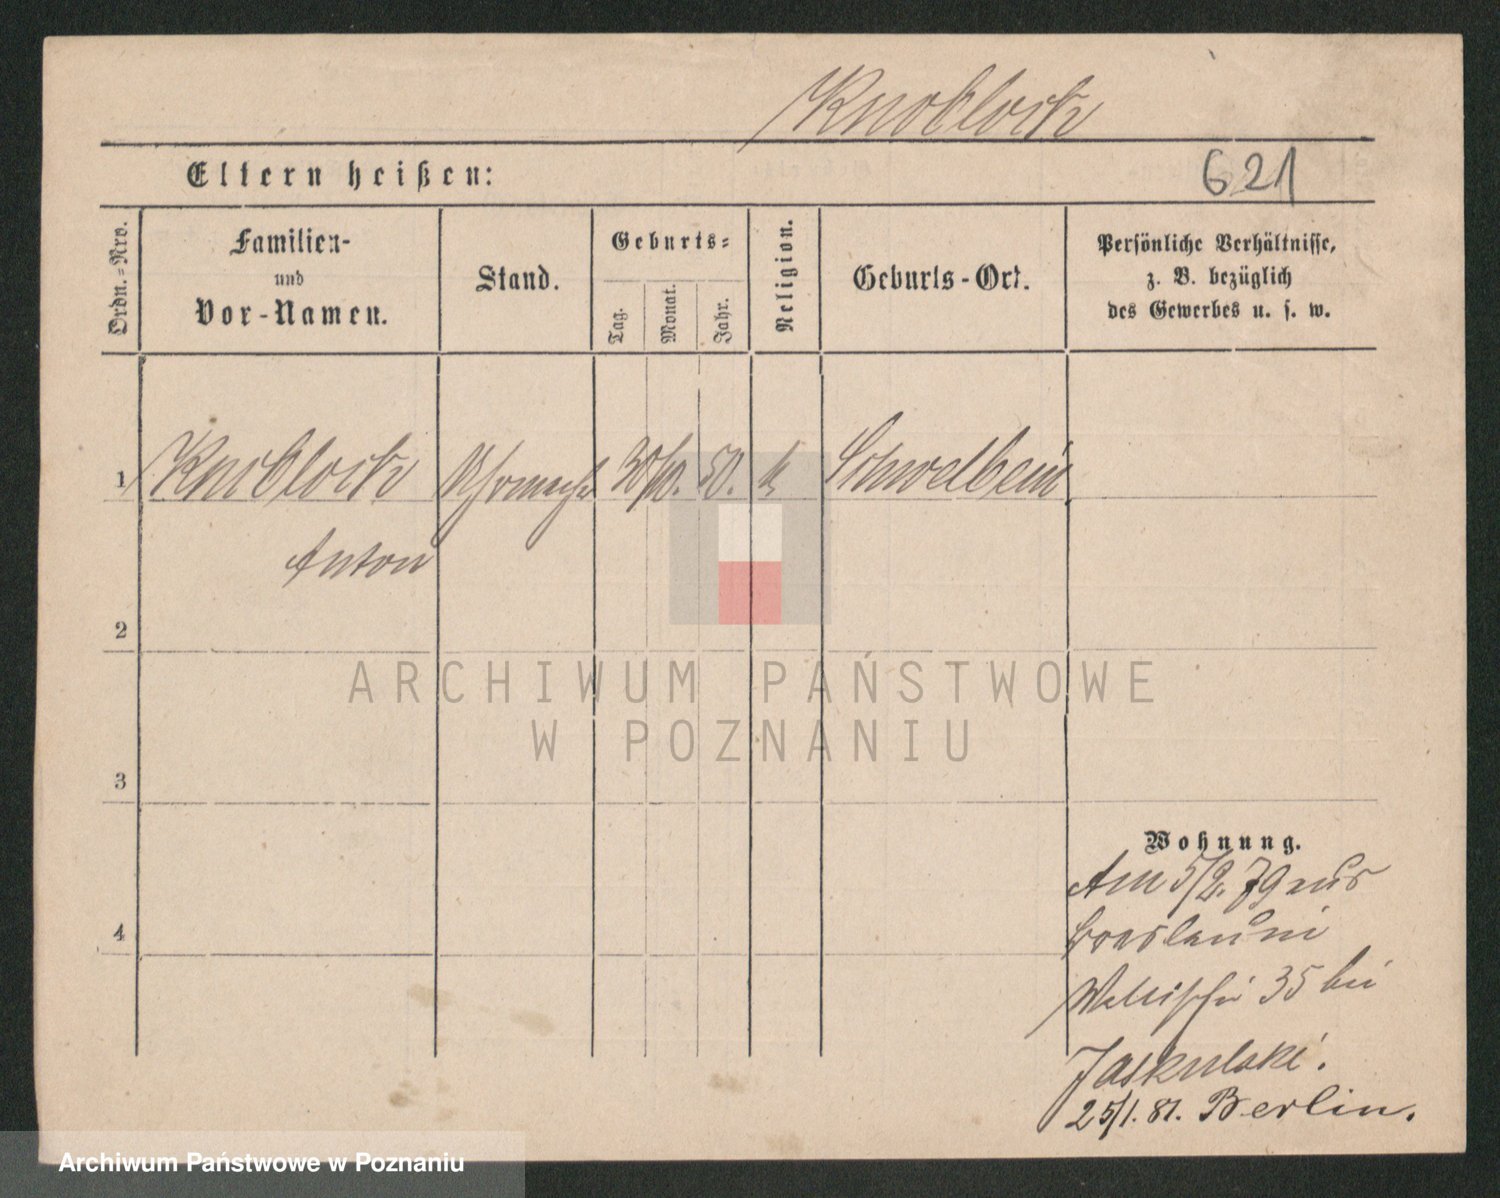 Knobloch
Eltern heißen:
621
Ordn.-Nro.
Familien-
und
Vor-Namen.
Stand.
Geburts-
Tag.
Monat.
Jahr.
Religion.
Geburts-Ort.
Persönliche Verhältnisse,
z. B. bezüglich
des Gewerbes u. s. w.
1 Knobloch 30/10. 50. k Schwelbein
Anton
2
3
4
Wohnung.
Am 5/2. 79 aus
Wallischei 35 bei
Jaskulski.
25/1. 81. Berlin.
ARCHIWUM PAŃSTWOWE
W POZNANIU
Archiwum Państwowe w Poznaniu